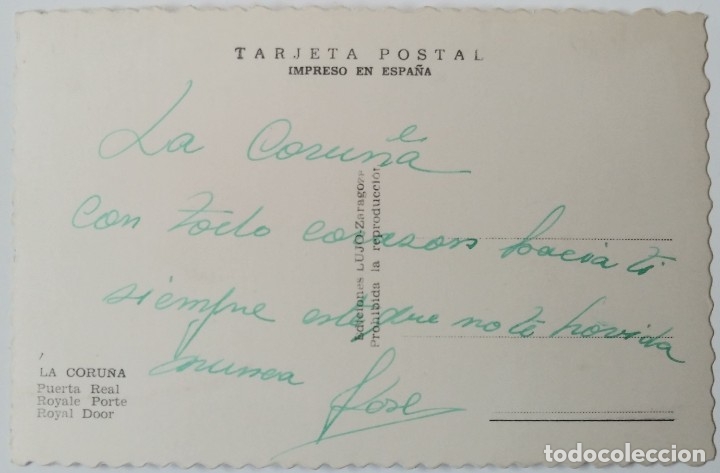 TARJETA POSTAL
IMPRESO EN ESPAÑA
La Coruña
con todo corason hacia ti
siempre este que no te hovida
nunca Jose
Ediciones LUJO-Zaragoza
Prohibida la reproducción
LA CORUÑA
Puerta Real
Royale Porte
Royal Door
todocoleccion.net